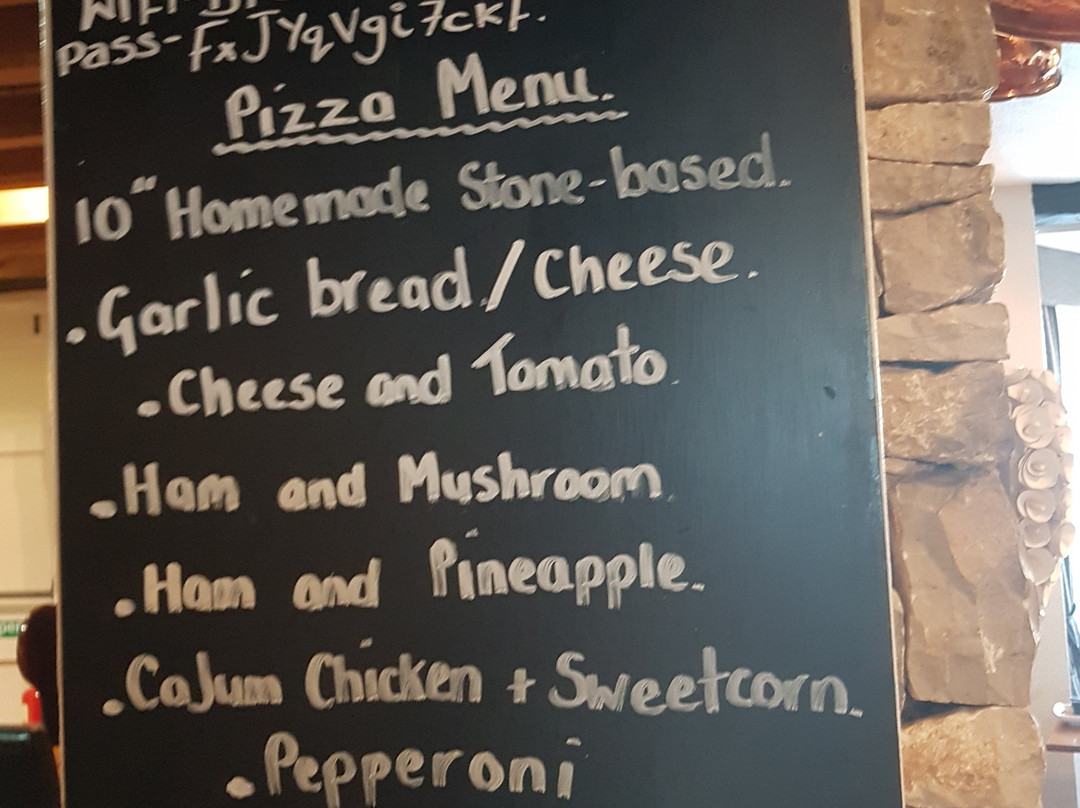 Pass- FxJYqVgi7ckf.
Pizza Menu.
10" Homemade Stone-based.
. Garlic bread./Cheese.
. Cheese and Tomato.
. Ham and Mushroom.
. Ham and Pineapple.
. Cajum Chicken + Sweetcorn.
. Pepperoni